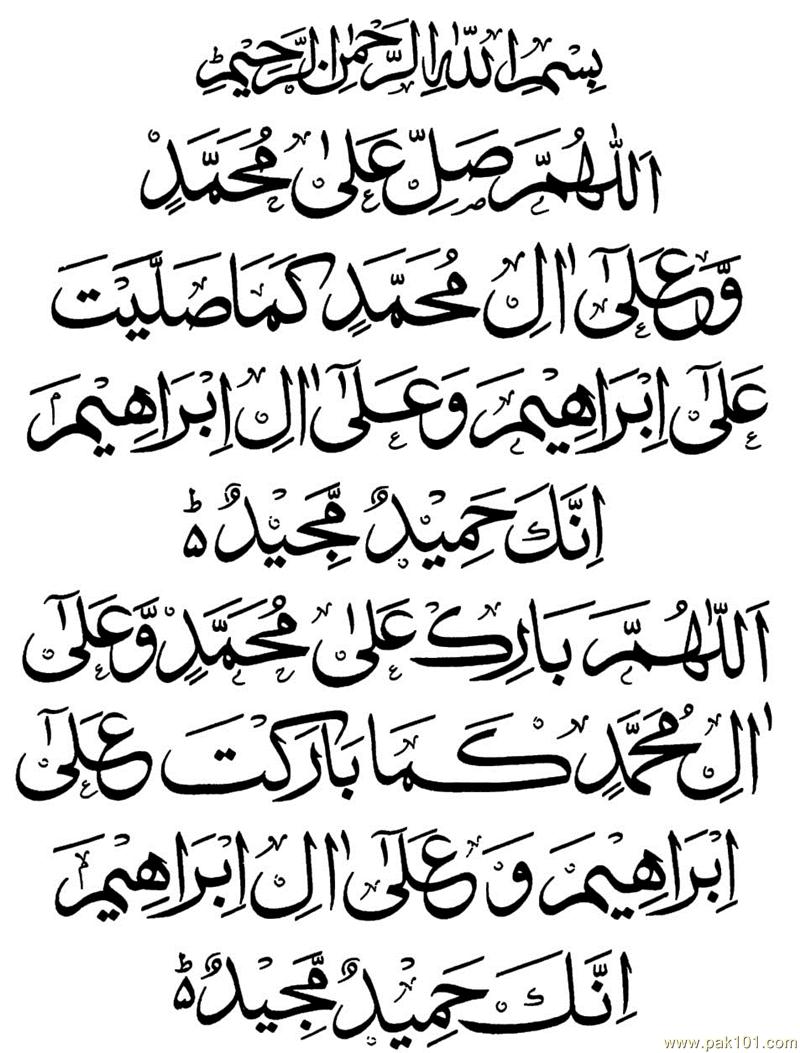 بِسْمِ اللّٰهِ الرَّحْمٰنِ الرَّحِيْمِ ؕ
اَللّٰهُمَّ صَلِّ عَلٰى مُحَمَّدٍ
وَّعَلٰٓى اٰلِ مُحَمَّدٍ كَمَا صَلَّيْتَ
عَلٰٓى اِبْرَاهِيْمَ وَعَلٰٓى اٰلِ اِبْرَاهِيْمَ
اِنَّكَ حَمِيْدٌ مَّجِيْدٌ ؕ۵
اَللّٰهُمَّ بَارِكْ عَلٰى مُحَمَّدٍ وَّعَلٰٓى
اٰلِ مُحَمَّدٍ كَمَا بَارَكْتَ عَلٰٓى
اِبْرَاهِيْمَ وَعَلٰٓى اٰلِ اِبْرَاهِيْمَ
اِنَّكَ حَمِيْدٌ مَّجِيْدٌ ؕ۵
www.pak101.com